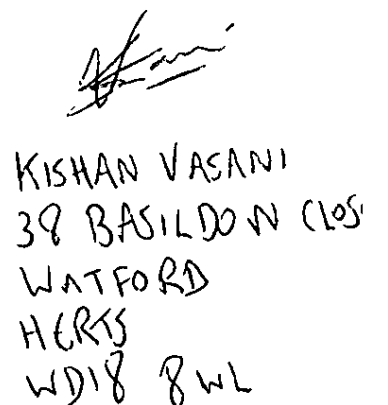 KISHAN VASANI
38 BASILDON CLOS
WATFORD
HERTS
WD18 8WL